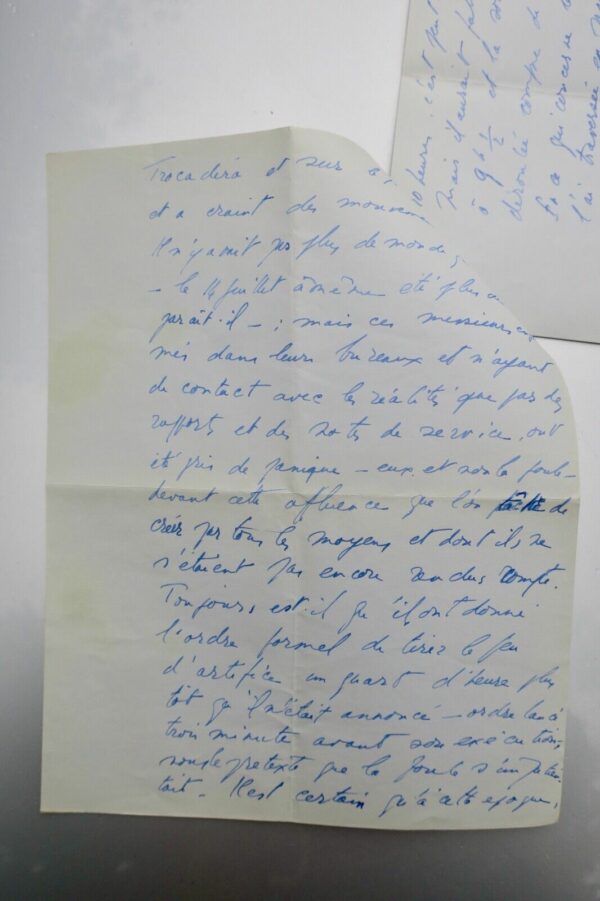 Trocadéro et sur
et a craint des mouvem
Il n'y avait pas plus de monde
- le 14 juillet a même été plus
paraît-il - ; mais ces messieurs
més dans leurs bureaux et n'ayant
de contact avec les réalités que par des
rapports et des notes de service, ont
été pris de panique - eux et non la foule -
devant cette affluence que l'on tâche de
créer par tous les moyens et dont ils ne
s'étaient pas encore rendus compte.
Toujours est-il qu'ils ont donné
l'ordre formel de tirer le feu
d'artifice un quart d'heure plus
tôt qu'il n'était annoncé - ordre lancé
trois minute avant son exécution,
sous le prétexte que la foule s'impatien
tait. Il est certain qu'à cette époque,
10 heures, c'est peut
Mais il aurait fal
à 9h 1/2 et la so
déroulée compte
En ce qui concerne
l'ai traversée